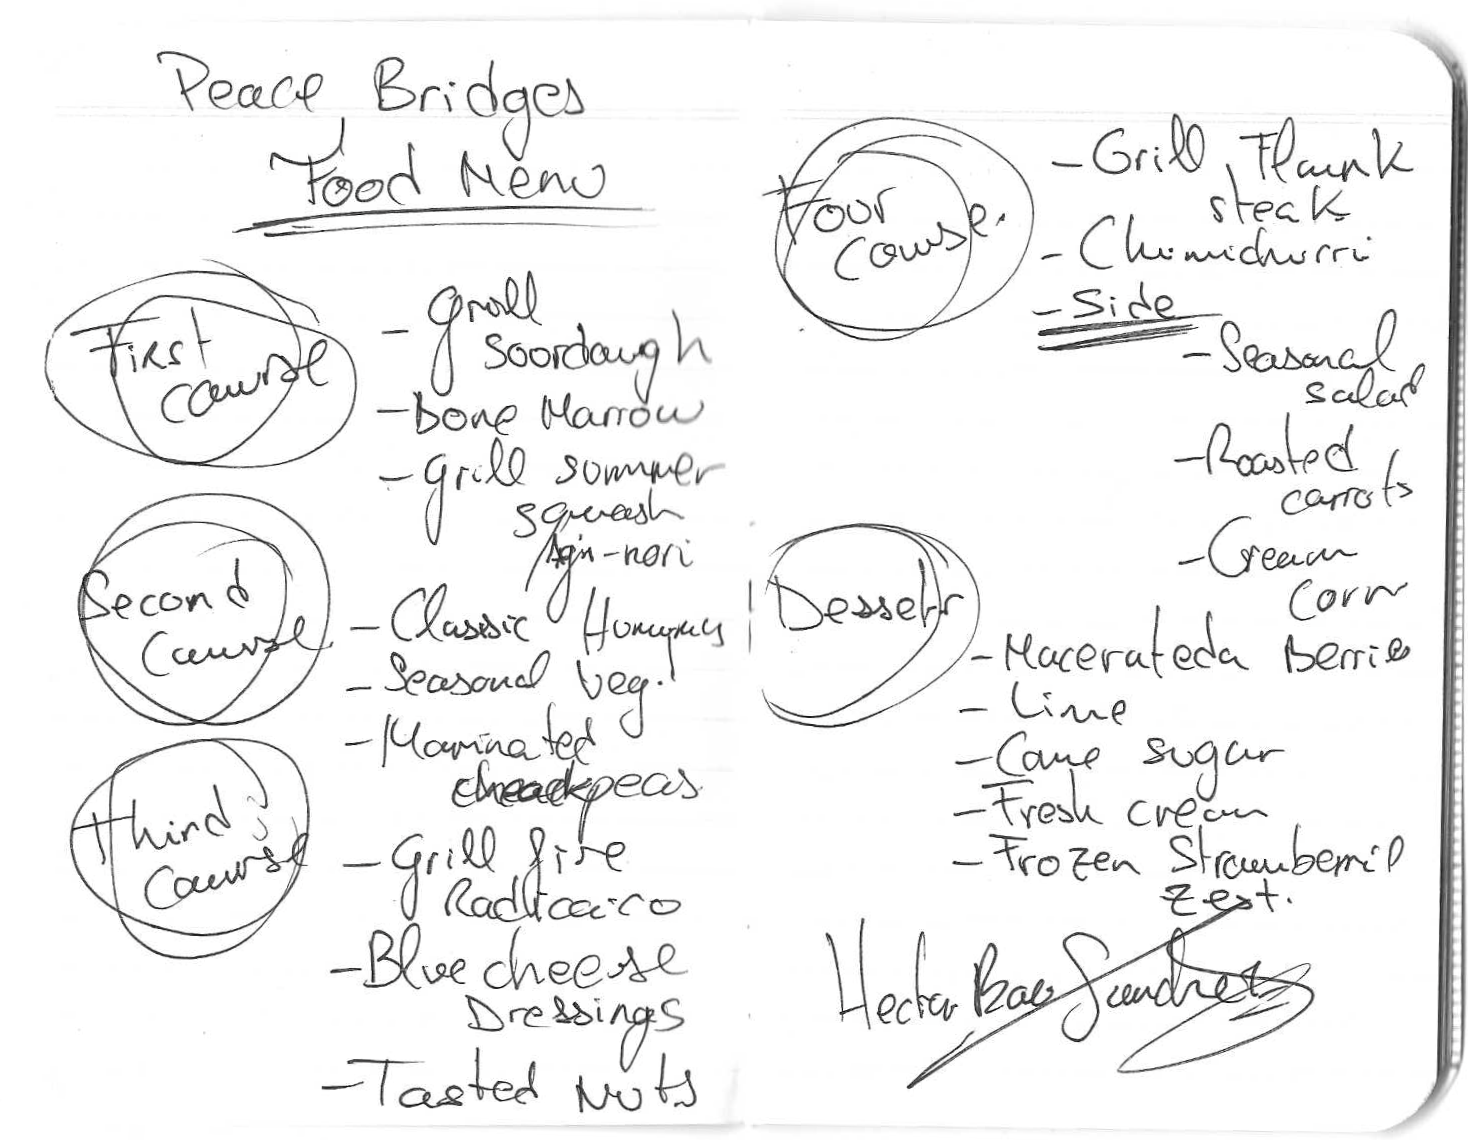 Peace Bridges
Food Menu
First
course
- Grill
Soordough
- Bone Marrow
- Grill sommer
squash
Agin-nori
Second
Course
- Classic Hummus
- Seasonal Veg.
- Marinated
checkpeas
third
Course
- Grill fire
Radiccairo
- Blue cheese
Dressings
- Tasted Nuts
Four
course.
- Grill Flank
steak
- Chimichurri
- Side
- Seasonal
salad
- Roasted
carrots
- Cream
corn
Dessert
- Macerateda Berries
- Lime
- Cane sugar
- Fresh cream
- Frozen Strawberrie
zest.
Hector Bao Sanchez